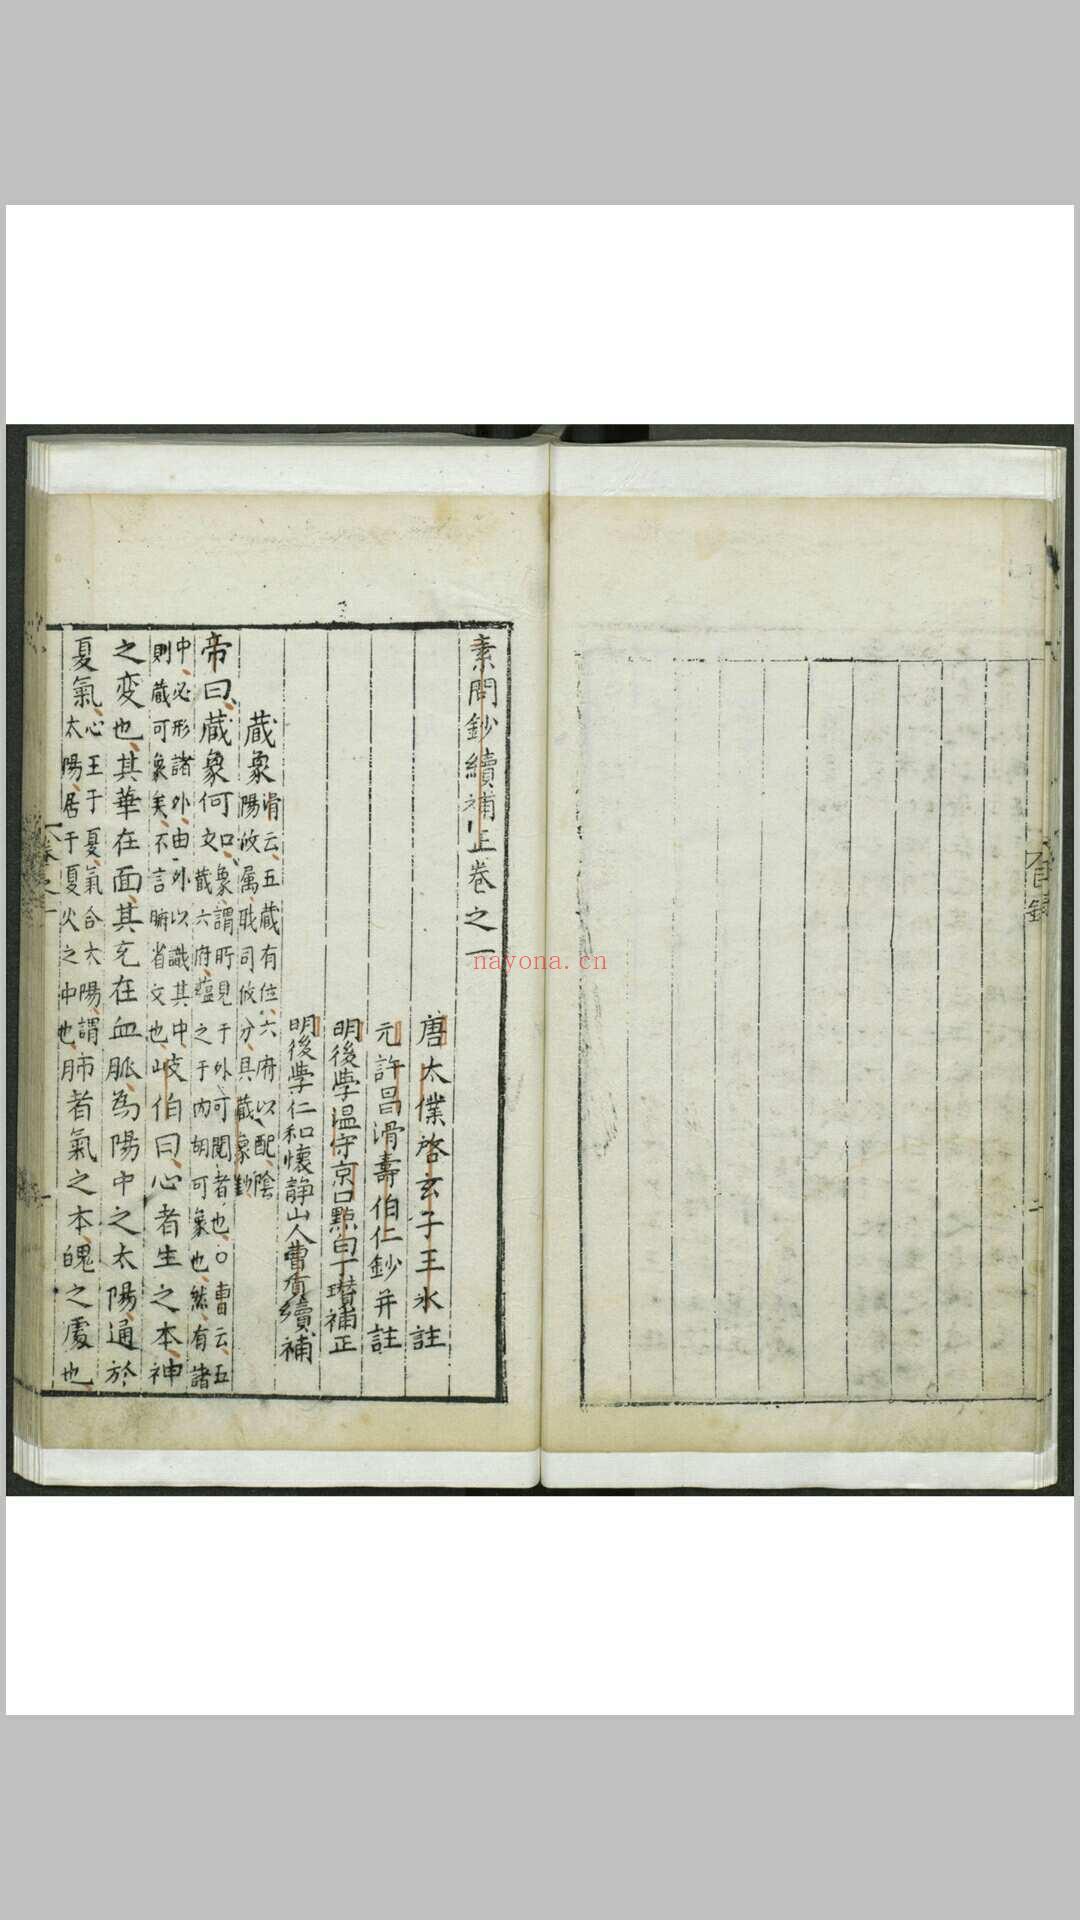 目錄
素問鈔續補正卷之一
唐太僕啓玄子王氷註
元許昌滑壽伯仁鈔并註
明後學温守京口點白丁瓚補正
明後學仁和懷靜山人曹賁續補
藏象
滑云五藏有位六府以配陰
陽攸属耺司攸分具藏象
帝曰藏象何
口象謂所見于外可閱者也○曹云五
文藏六府蘊之于内胡可象也然有諸
中必形諸外由外以識其中
則藏可象矣不言腑省文也
岐伯曰心者生之本神
之変也其華在面其充在血脈為陽中之太陽通於
夏氣
心王于夏氣合太陽謂
太陽居于夏火之中也
肺者氣之本魄之處也
卷之一
nayona.cn